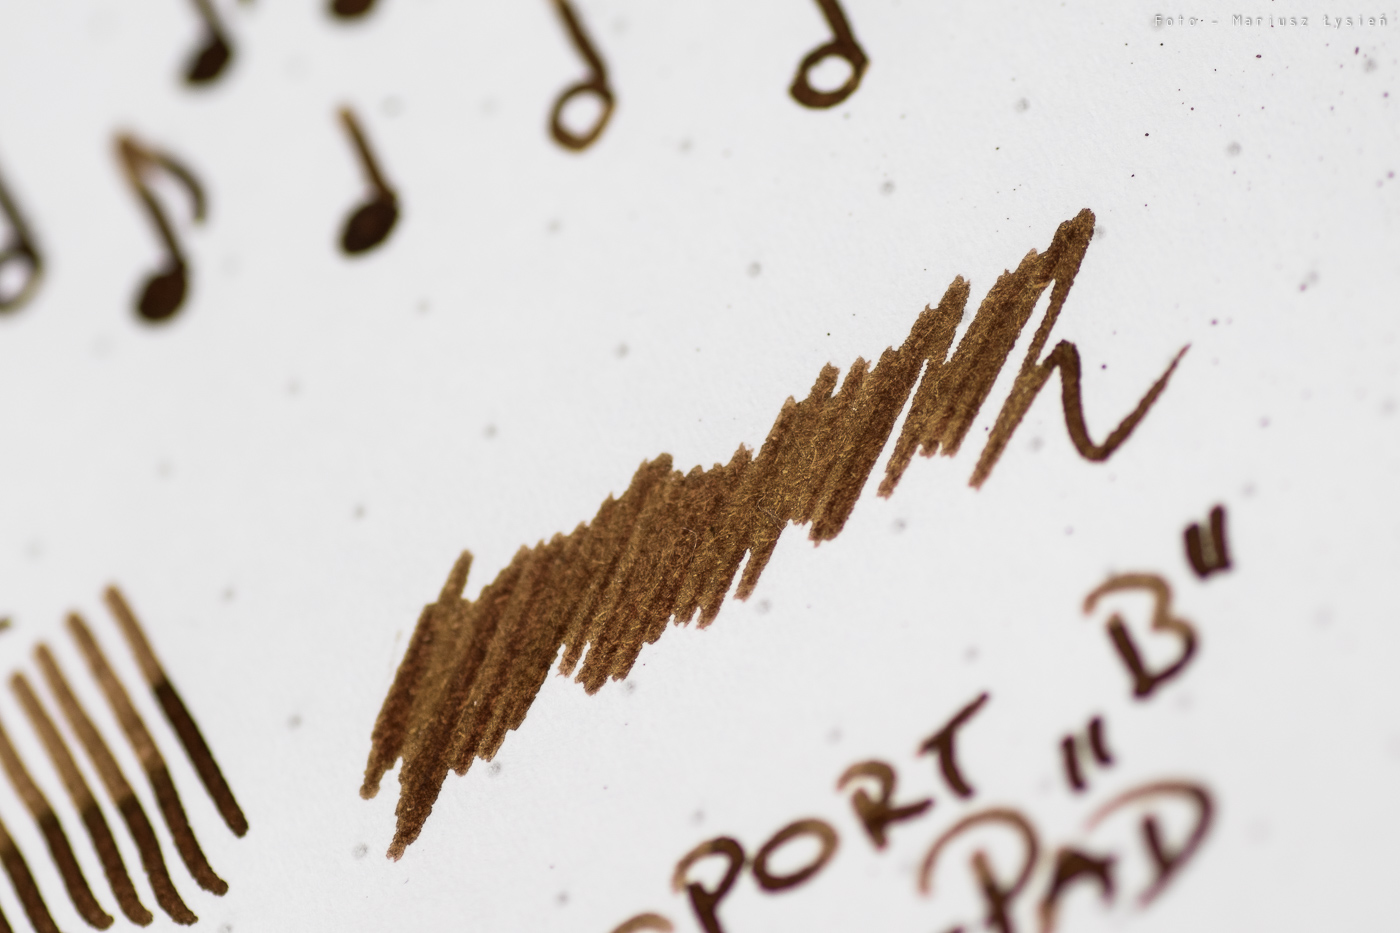 Foto - Mariusz Łysień
B"
PORT "
PAD